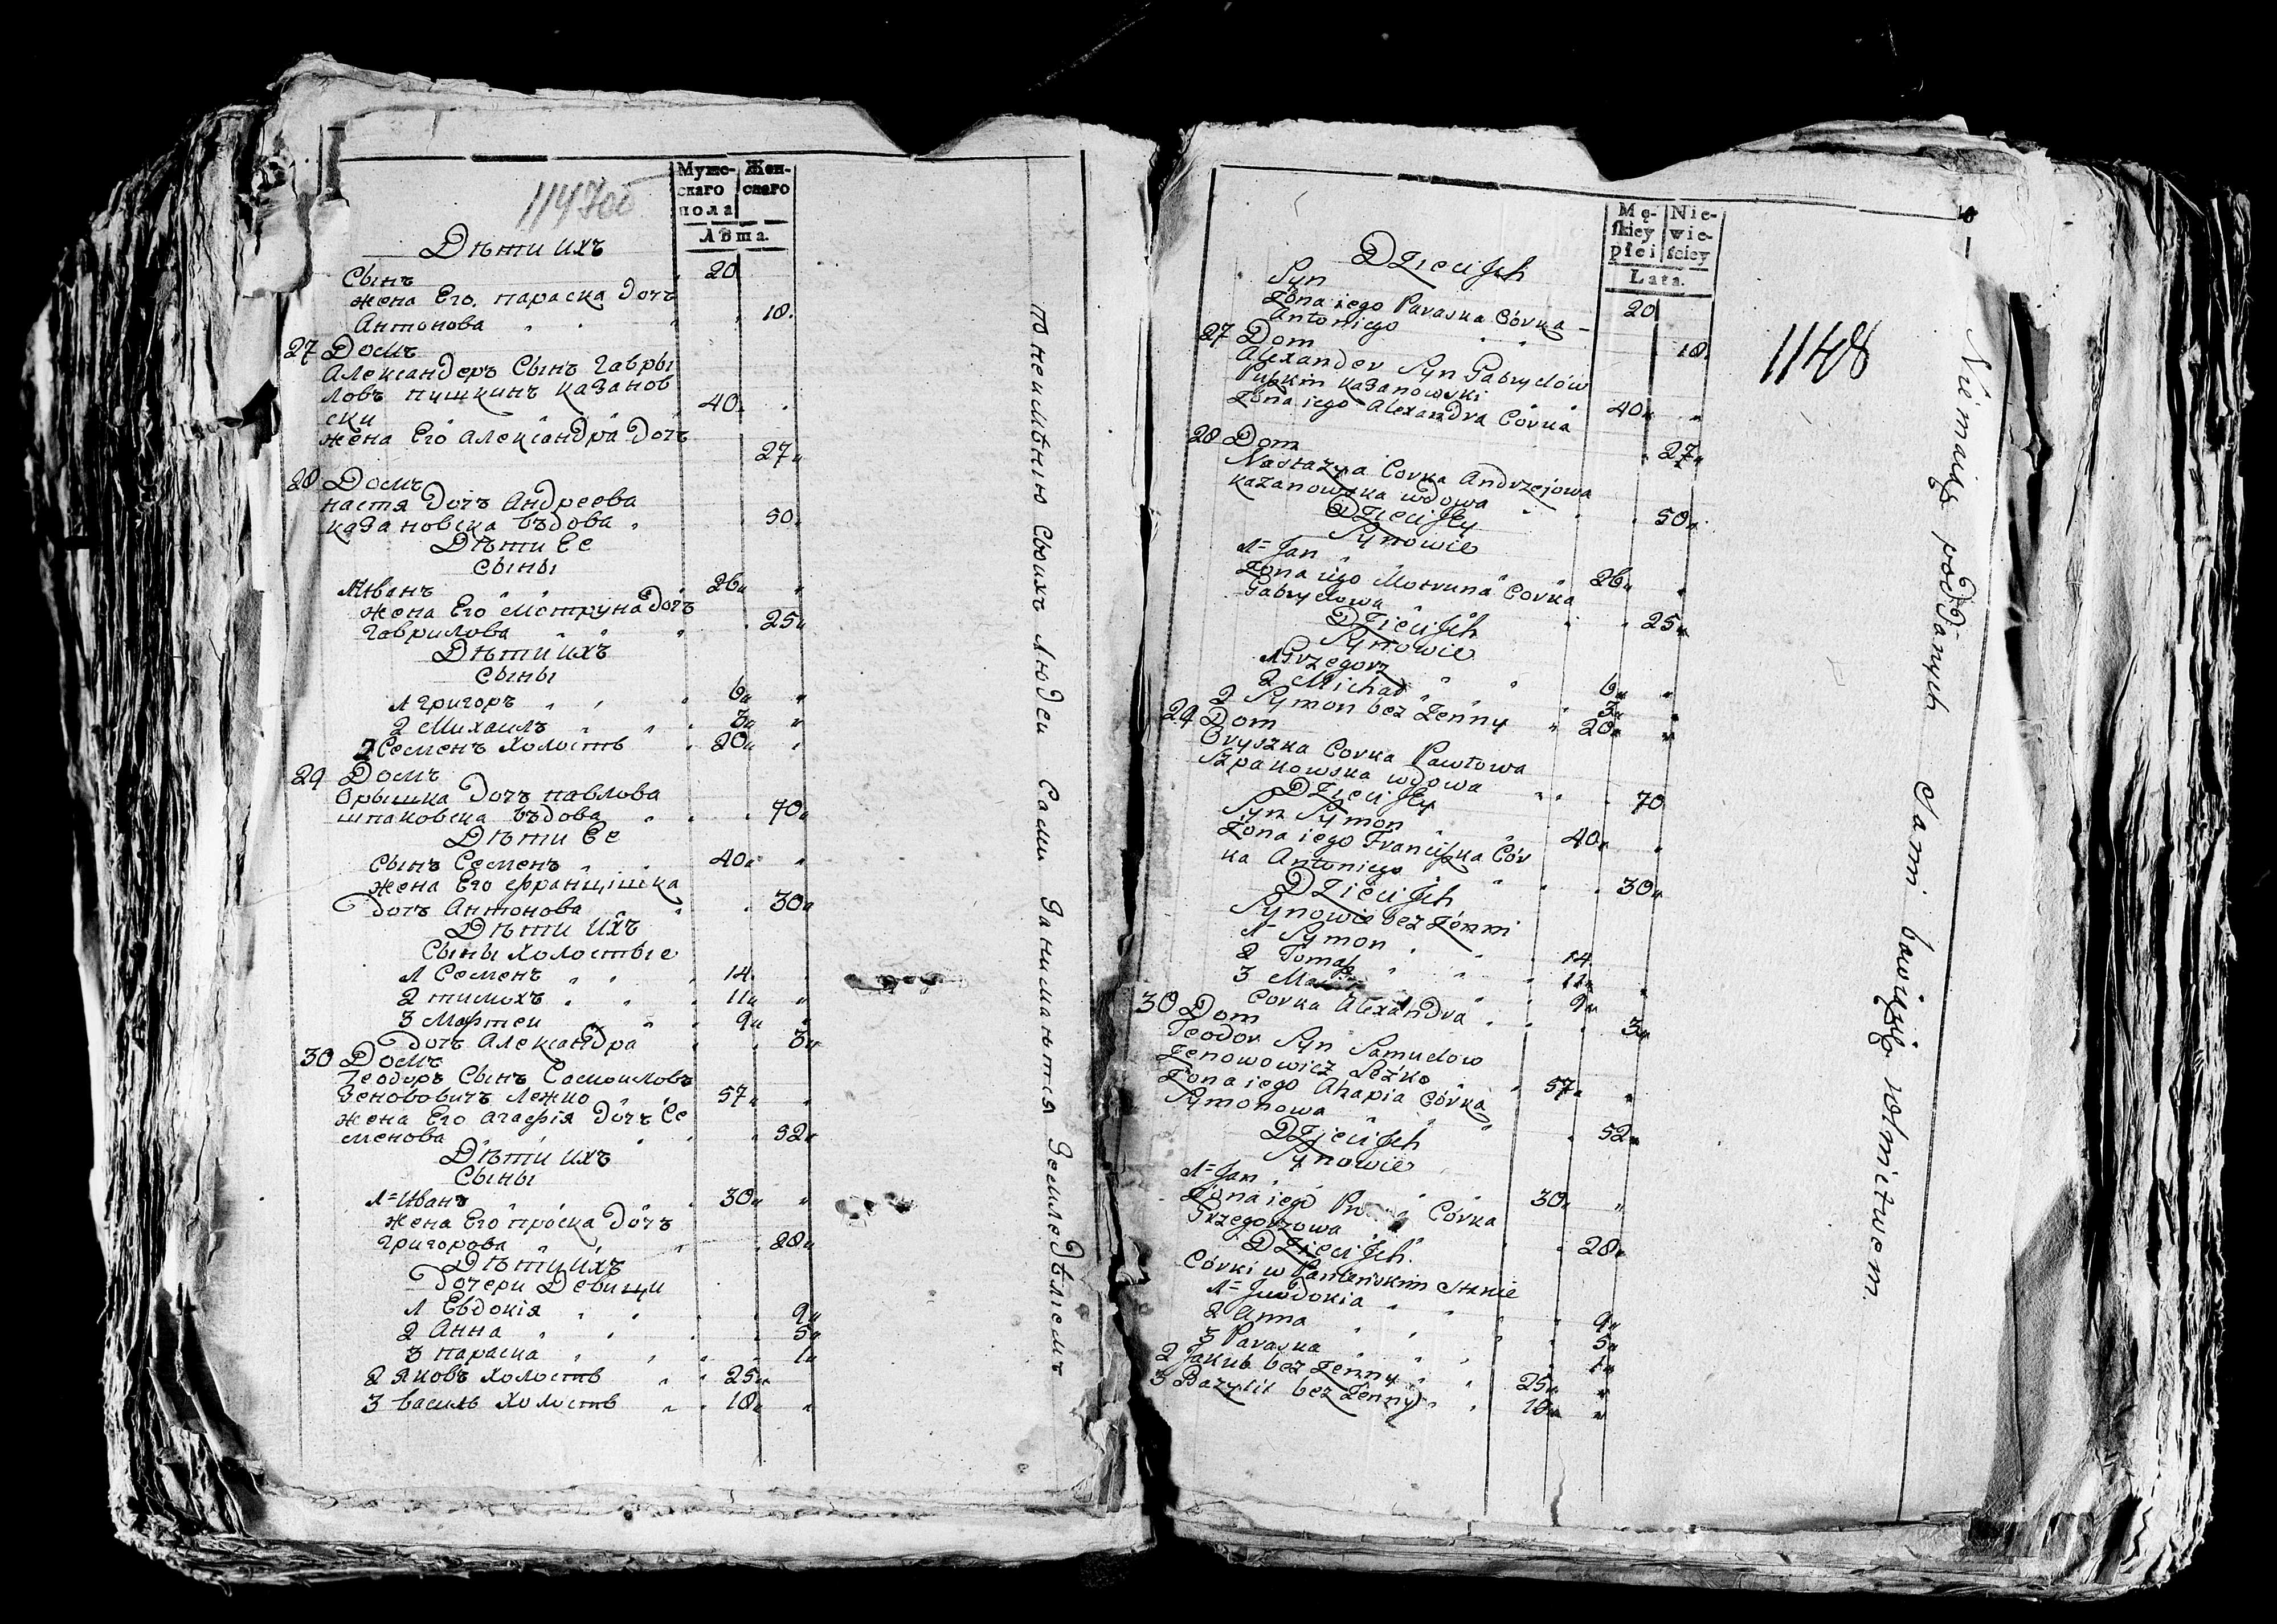 1147об
Муже-
скаго
пола
Жен-
скаго
Лѣта.
Дѣти ихъ
Сынъ 20
жена Его параска дочъ
Антонова 18.
27 Домъ
Александеръ Сынъ Гаври
ловъ пушкинъ казанов
ски 40
жена Его александра дочъ
27
28 Домъ
настя дочъ Андреева
казановска въдова 50
Дѣти Ее
Сыны
1 Иванъ 26
жена Его мотруна дочъ
Гаврилова 25
Дѣти ихъ
Сыны
1 григоръ 6
2 Михаилъ 3
2 Семенъ холостъ 20
29 Домъ
Орышка дочъ павлова
шпаковска въдова 70
Дѣти Ее
Сынъ Семенъ 40
жена Его францишка
дочъ Антонова 30
Дѣти ихъ
Сыны холостые
1 Семенъ 14
2 тимохъ 11
3 Мартеи 9
дочъ Александра 3
30 Домъ
Теодоръ Сынъ Самоиловъ
Зенововичъ лежко 57
жена Его агафія дочъ Се
менова 52
Дѣти ихъ
Сыны
1 Иванъ 30
жена Его проска дочъ
Григорова 28
Дѣти ихъ
дочери Девици
1 Евдокія 9
2 Анна 5
3 параска 1
2 яковъ холостъ 25
3 василь холостъ 18
по неимѣнію Своихъ людеи Сами Занимаются Земледѣліемъ
Mę-
skiey
płci
Nie-
wie-
ściey
Lata.
1148
Dzieci Jch
Syn 20
Żona iego Paraska Córka
Antoniego 18.
27 Dom
Alexander Syn Gabryelów
Puszkin Kazanowski 40
Żona iego Alexandra Córka
27
28 Dom
Nastazya Corka Andrzejowa
Kazanowska wdowa 50
Dzieci Jey
Synowie
1 Jan 26
Żona iego Motruna Corka
Gabryelowa 25
Dzieci Jch
Synowie
1 Grzegorz 6
2 Michał 3
2 Symon bez Żenny 20
29 Dom
Oryszka Corka Pawłowa
Szpakowska wdowa 70
Dzieci Jey
Syn Symon 40
Żona iego Franciszka Cór
ka Antoniego 30
Dzieci Jch
Synowie bez Żenni
1 Symon 14
2 Tomasz 11
3 9
Corka Alexandra 3
30 Dom
Teodor Syn Samuelow
Zenowowicz Leżko 57
Żona iego Ahapia Córka
Symonowa 52
Dzieci Jch
Synowie
1 Jan 30
Żona iego Córka
Grzegorzowa 28
Dzieci Jch
Córki w Panieńskim Stanie
1 Jewdokia 9
2 Anna 5
3 Paraska 1
2 Jakub bez Żenny 25
3 Bazylii bez Żenny 18
Niemaiąc poddanych Sami bawią się rolnictwem.